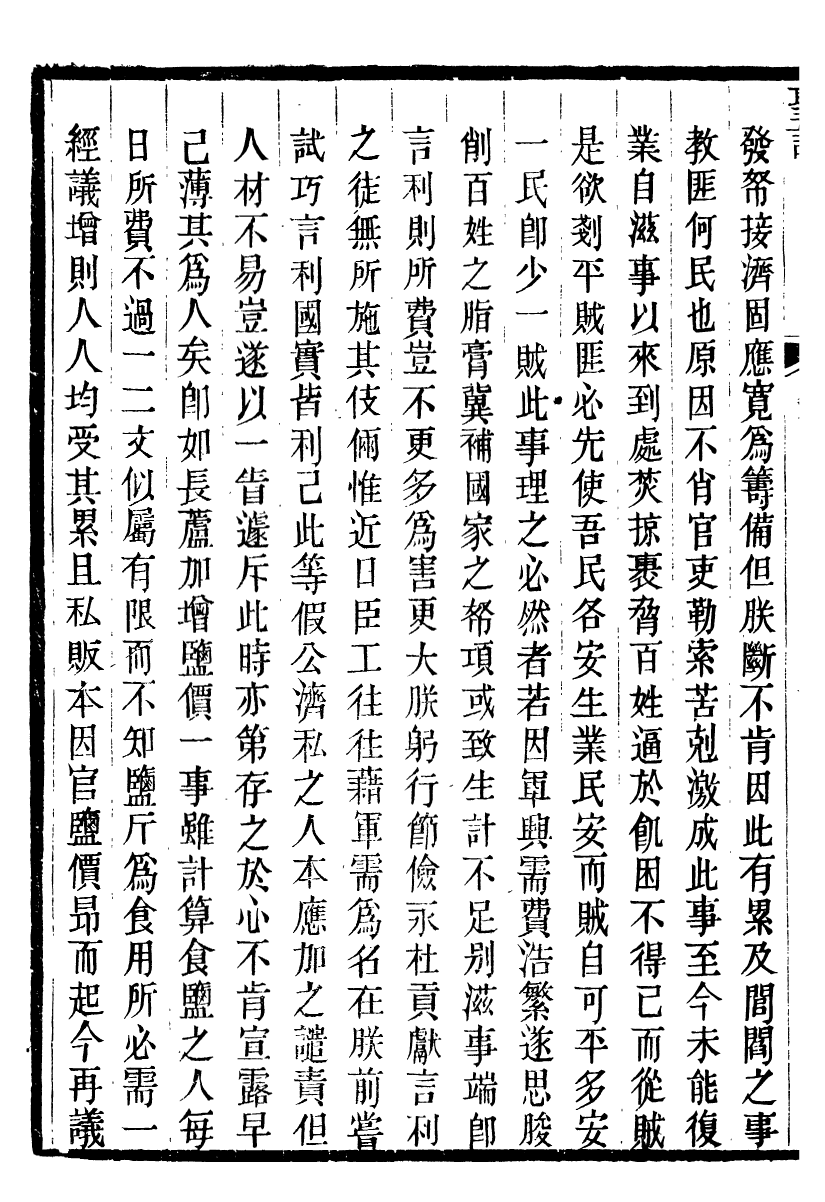 發帑接濟固應寬爲籌備但朕斷不肯因此有累及閭閻之事
教匪何民也原因不肖官吏勒索苦剋激成此事至今未能復
業自滋事以來到處焚掠裹脅百姓逼於飢困不得已而從賊
是欲剗平賊匪必先使吾民各安生業民安而賊自可平多安
一民卽少一賊此事理之必然者若因軍興需費浩繁遂思朘
削百姓之脂膏冀補國家之帑項或致生計不足別滋事端卽
言利則所費豈不更多爲害更大朕躬行節儉永杜貢獻言利
之徒無所施其伎倆惟近日臣工往往藉軍需爲名在朕前嘗
試巧言利國實皆利己此等假公濟私之人本應加之譴責但
人材不易豈遂以一眚遽斥此時亦第存之於心不肯宣露早
己薄其爲人矣卽如長蘆加增鹽價一事雖計算食鹽之人每
日所費不過一二文似屬有限而不知鹽斤爲食用所必需一
經議增則人人均受其累且私販本因官鹽價昂而起今再議